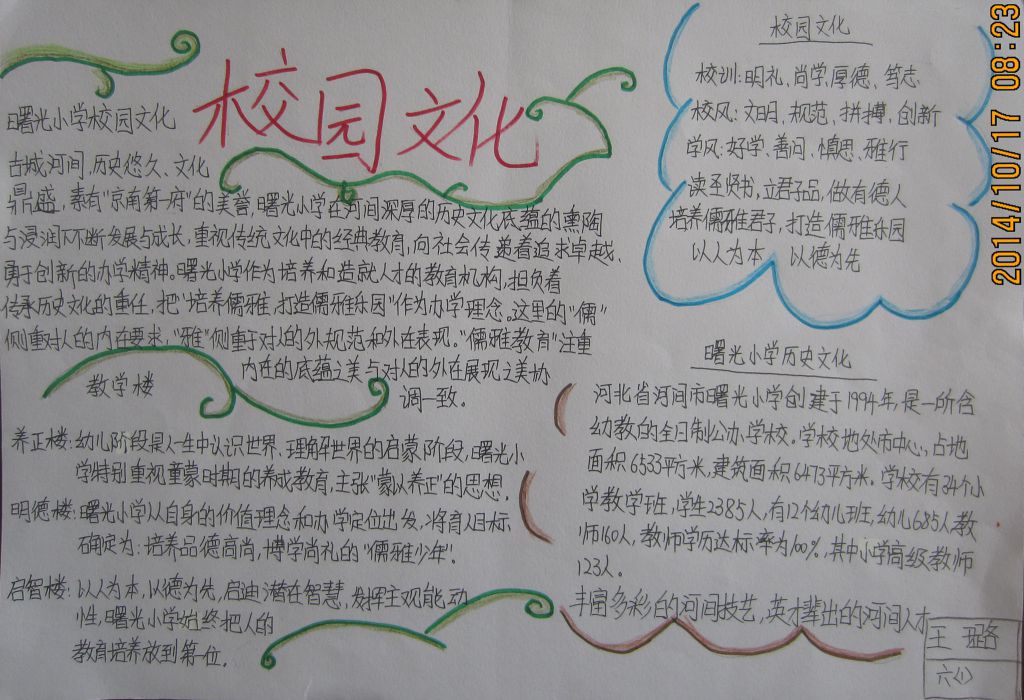 校园文化
曙光小学校园文化
古城河间,历史悠久、文化
鼎盛,素有"京南第一府"的美誉,曙光小学在河间深厚的历史文化底蕴的熏陶
与浸润下不断发展与成长,重视传统文化中的经典教育,向社会传递着追求卓越、
勇于创新的办学精神。曙光小学作为培养和造就人才的教育机构,担负着
传承历史文化的重任,把"培养儒雅,打造儒雅乐园"作为办学理念。这里的"儒"
侧重对人的内在要求,"雅"侧重于对人的外规范和外在表现。"儒雅教育"注重
内在的底蕴之美与对人的外在展现之美协
调一致。
教学楼
养正楼:幼儿阶段是人一生中认识世界、理解世界的启蒙阶段,曙光小
学特别重视童蒙时期的养成教育,主张"蒙以养正"的思想。
明德楼:曙光小学从自身的价值理念和办学定位出发,将育人目标
确定为:培养品德高尚,博学尚礼的"儒雅少年"。
启智楼:以人为本,以德为先,启迪潜在智慧,发挥主观能动
性,曙光小学始终把人的
教育培养放到第一位。
校园文化
校训:明礼、尚学、厚德、笃志
校风:文明、规范、拼搏、创新
学风:好学、善问、慎思、雅行
读圣贤书,立君子品,做有德人
培养儒雅君子,打造儒雅乐园
以人为本 以德为先
曙光小学历史文化
河北省河间市曙光小学创建于1994年,是一所含
幼教的全日制公办学校。学校地处市中心,占地
面积6533平方米,建筑面积6473平方米。学校有34个小
学教学班,学生2385人,有12个幼儿班,幼儿685人教
师160人,教师学历达标率为100%,其中小学高级教师
123人。
丰富多彩的河间技艺,英才辈出的河间人才
王璐
六(1)
2014/10/17 08:23